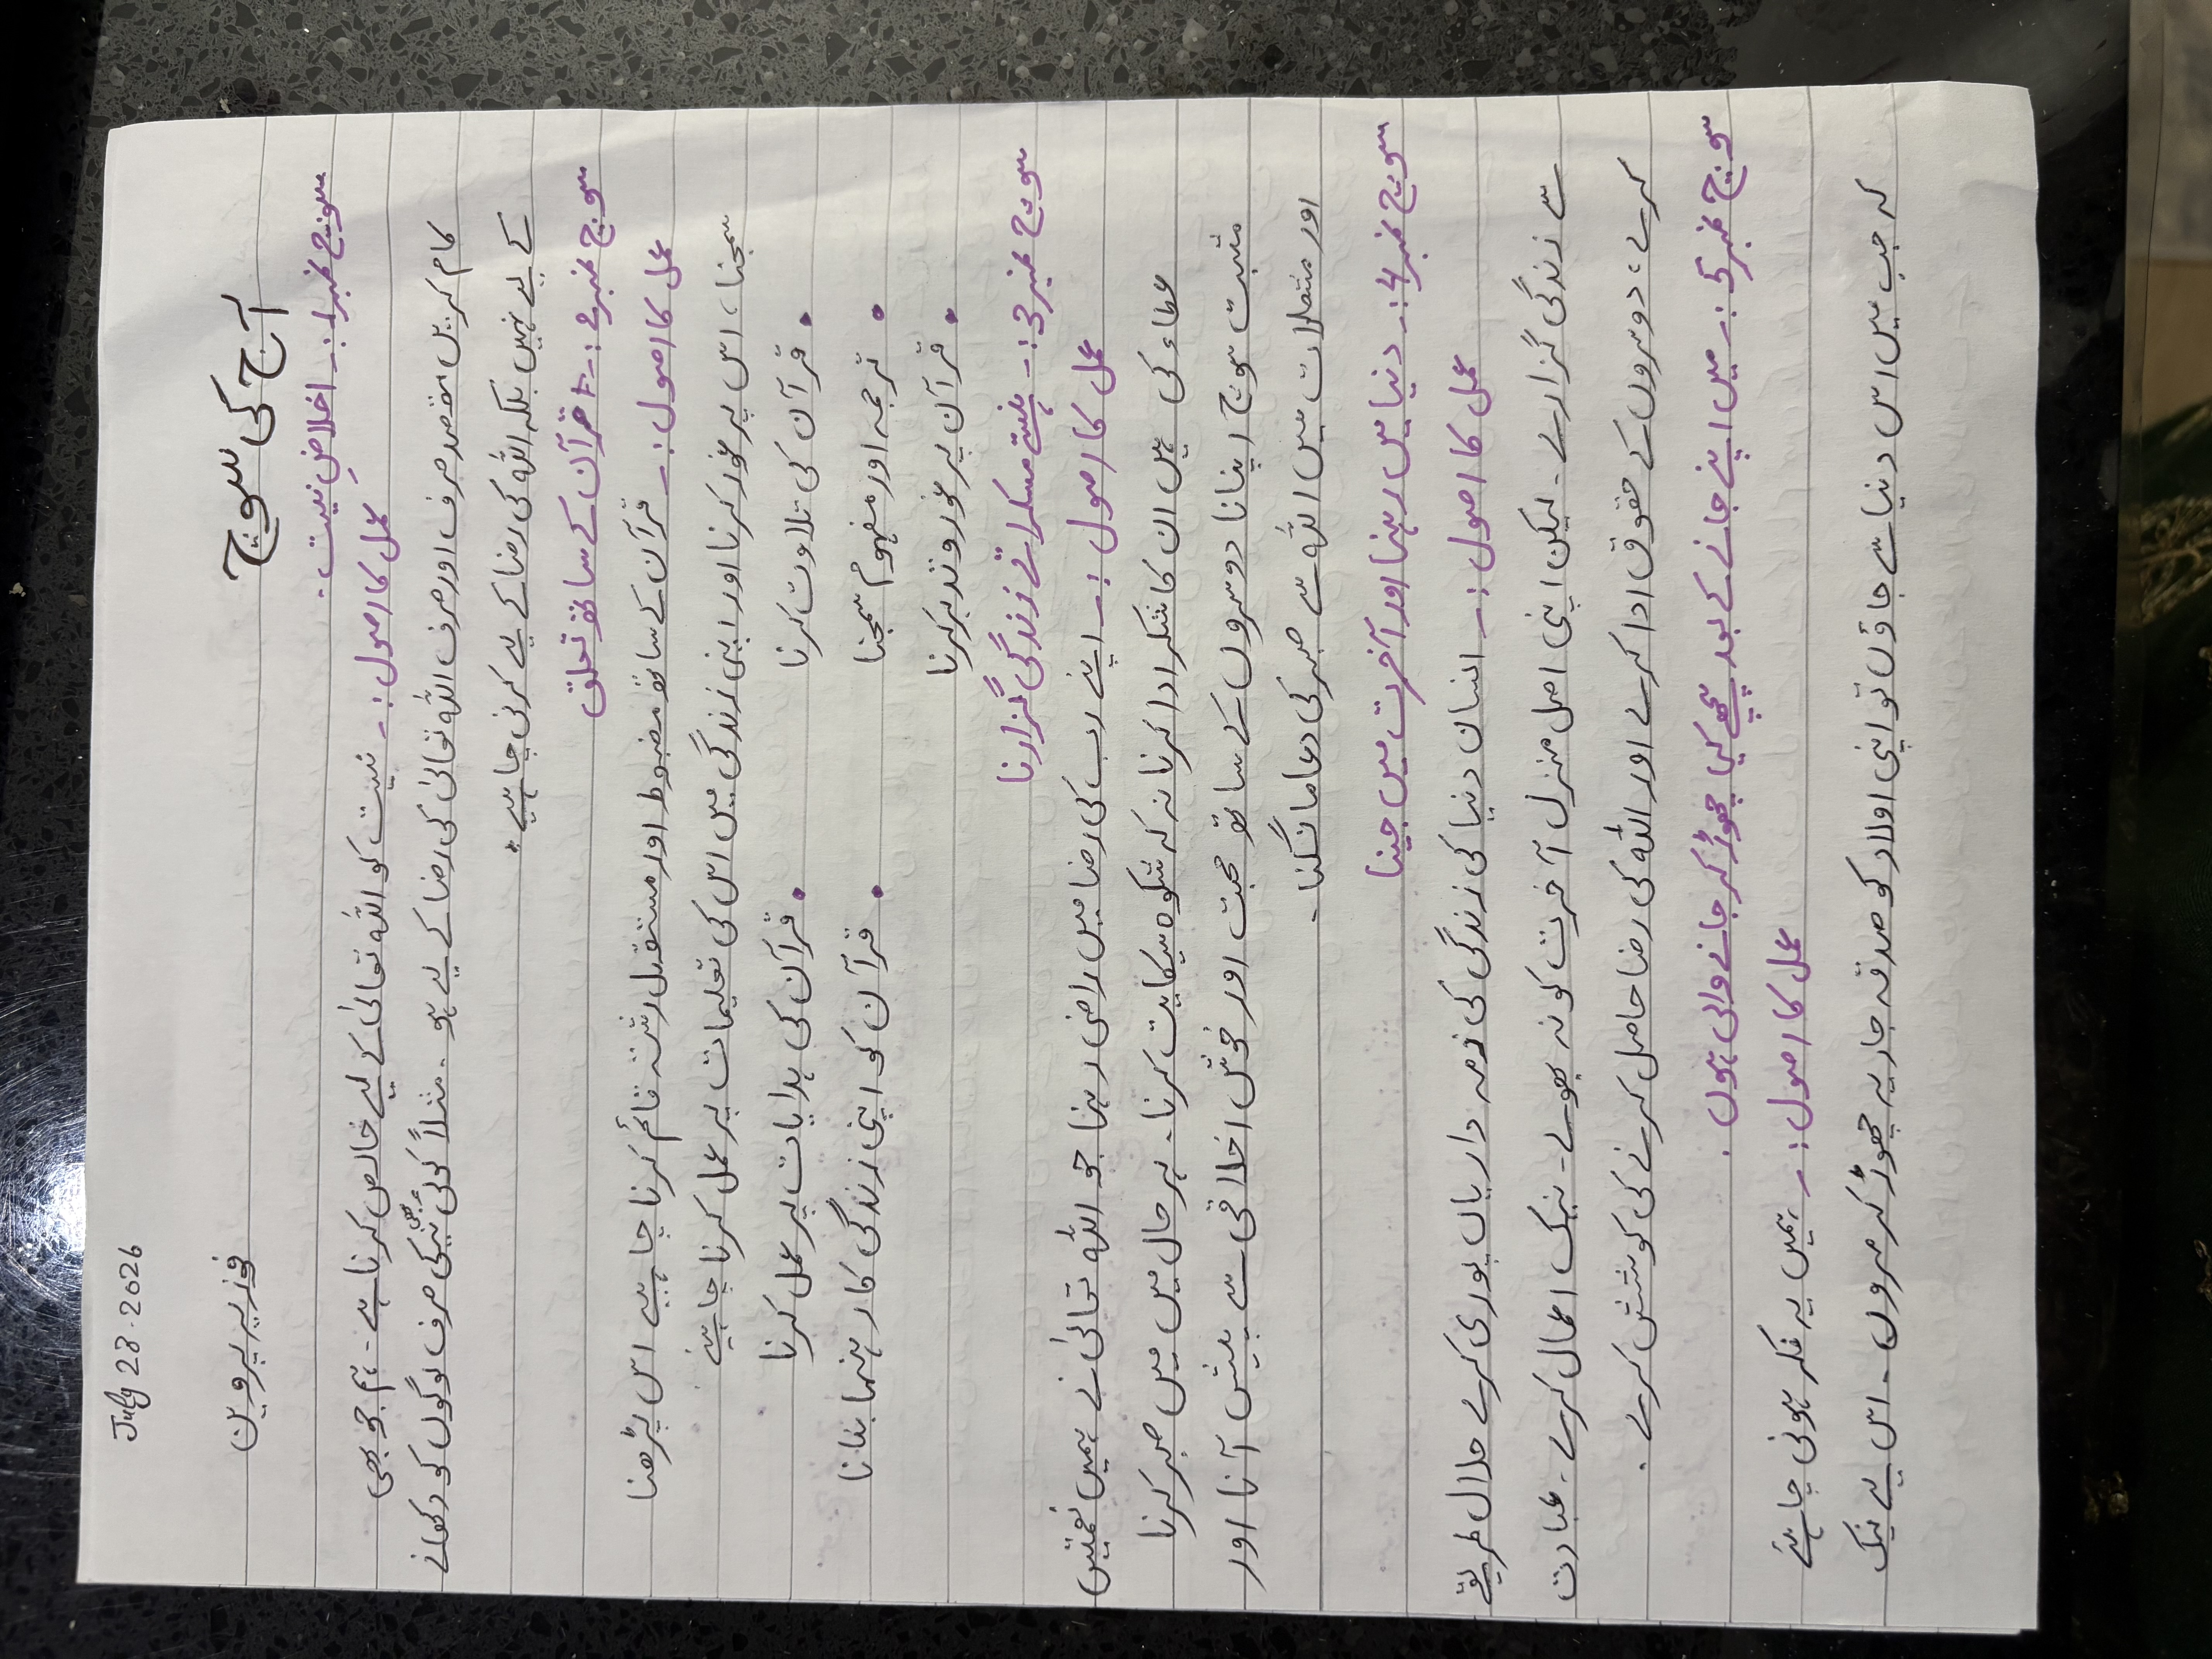 July 23-2026
آج کی سوچ
فوزیہ پروین
سوچ نمبر 1:- اخلاصِ نیت.
عمل کا اصول:- نیت کو اللہ تعالیٰ کے لیے خالص کرنا ہے - ہم جو بھی
کام کریں مقصد صرف اور صرف اللہ تعالیٰ کی رضا کے لیے ہو - مثلاً کوئی بھی نیکی صرف لوگوں کو دکھانے
کے لیے نہیں بلکہ اللہ کی رضا کے لیے کرنی چاہیے.
سوچ نمبر 2:- قرآن کے ساتھ تعلق
عمل کا اصول:- قرآن کے ساتھ مضبوط اور مستقل رشتہ قائم کرنا چاہیے اس پڑھنا
سمجھنا، اس پر غور کرنا اور اپنی زندگی میں اس کی تعلیمات پر عمل کرنا چاہیئے
• قرآن کی تلاوت کرنا • قرآن کی ہدایات پر عمل کرنا
• ترجمہ اور مفہوم سمجھنا • قرآن کو اپنی زندگی کا رہنما بنانا
• قرآن پر غور و تدبر کرنا
سوچ نمبر 3:- ہنستے مسکراتے زندگی گزارنا
عمل کا اصول:- اپنے رب کی رضا میں راضی رہنا جو اللہ تعالیٰ نے ہمیں نعمتیں
عطاء کی ہیں ان کا شکر ادا کرنا نہ کہ شکوہ شکایت کرنا - ہر حال میں میں صبر کرنا
مثبت سوچ اپنانا دوسروں کے ساتھ محبت اور خوش اخلاقی سے پیش آنا اور
اور مشکلات میں اللہ سے صبر کی دعا مانگنا -
سوچ نمبر 4:- دنیا میں رہنا اور آخرت میں جینا
عمل کا اصول:- انسان دنیا کی زندگی کی ذمہ داریاں پوری کرے حلال طریقے
سے زندگی گزارے - لیکن اپنی اصل منزل آخرت کو نہ بھولے - نیک اعمال کرے - عبادت
کرے، دوسروں کے حقوق ادا کرے اور اللہ کی رضا حاصل کرنے کی کوشش کرے.
سوچ نمبر 5:- میں اپنے جانے کے بعد پیچھے کیا چھوڑ کر جانے والی ہوں.
عمل کا اصول:- ہمیں یہ فکر ہونی چاہئے
کہ جب میں اس دنیا سے جاؤں تو اپنی اولاد کو صدقہ جاریہ چھوڑ کر مروں - اس لیے نیک